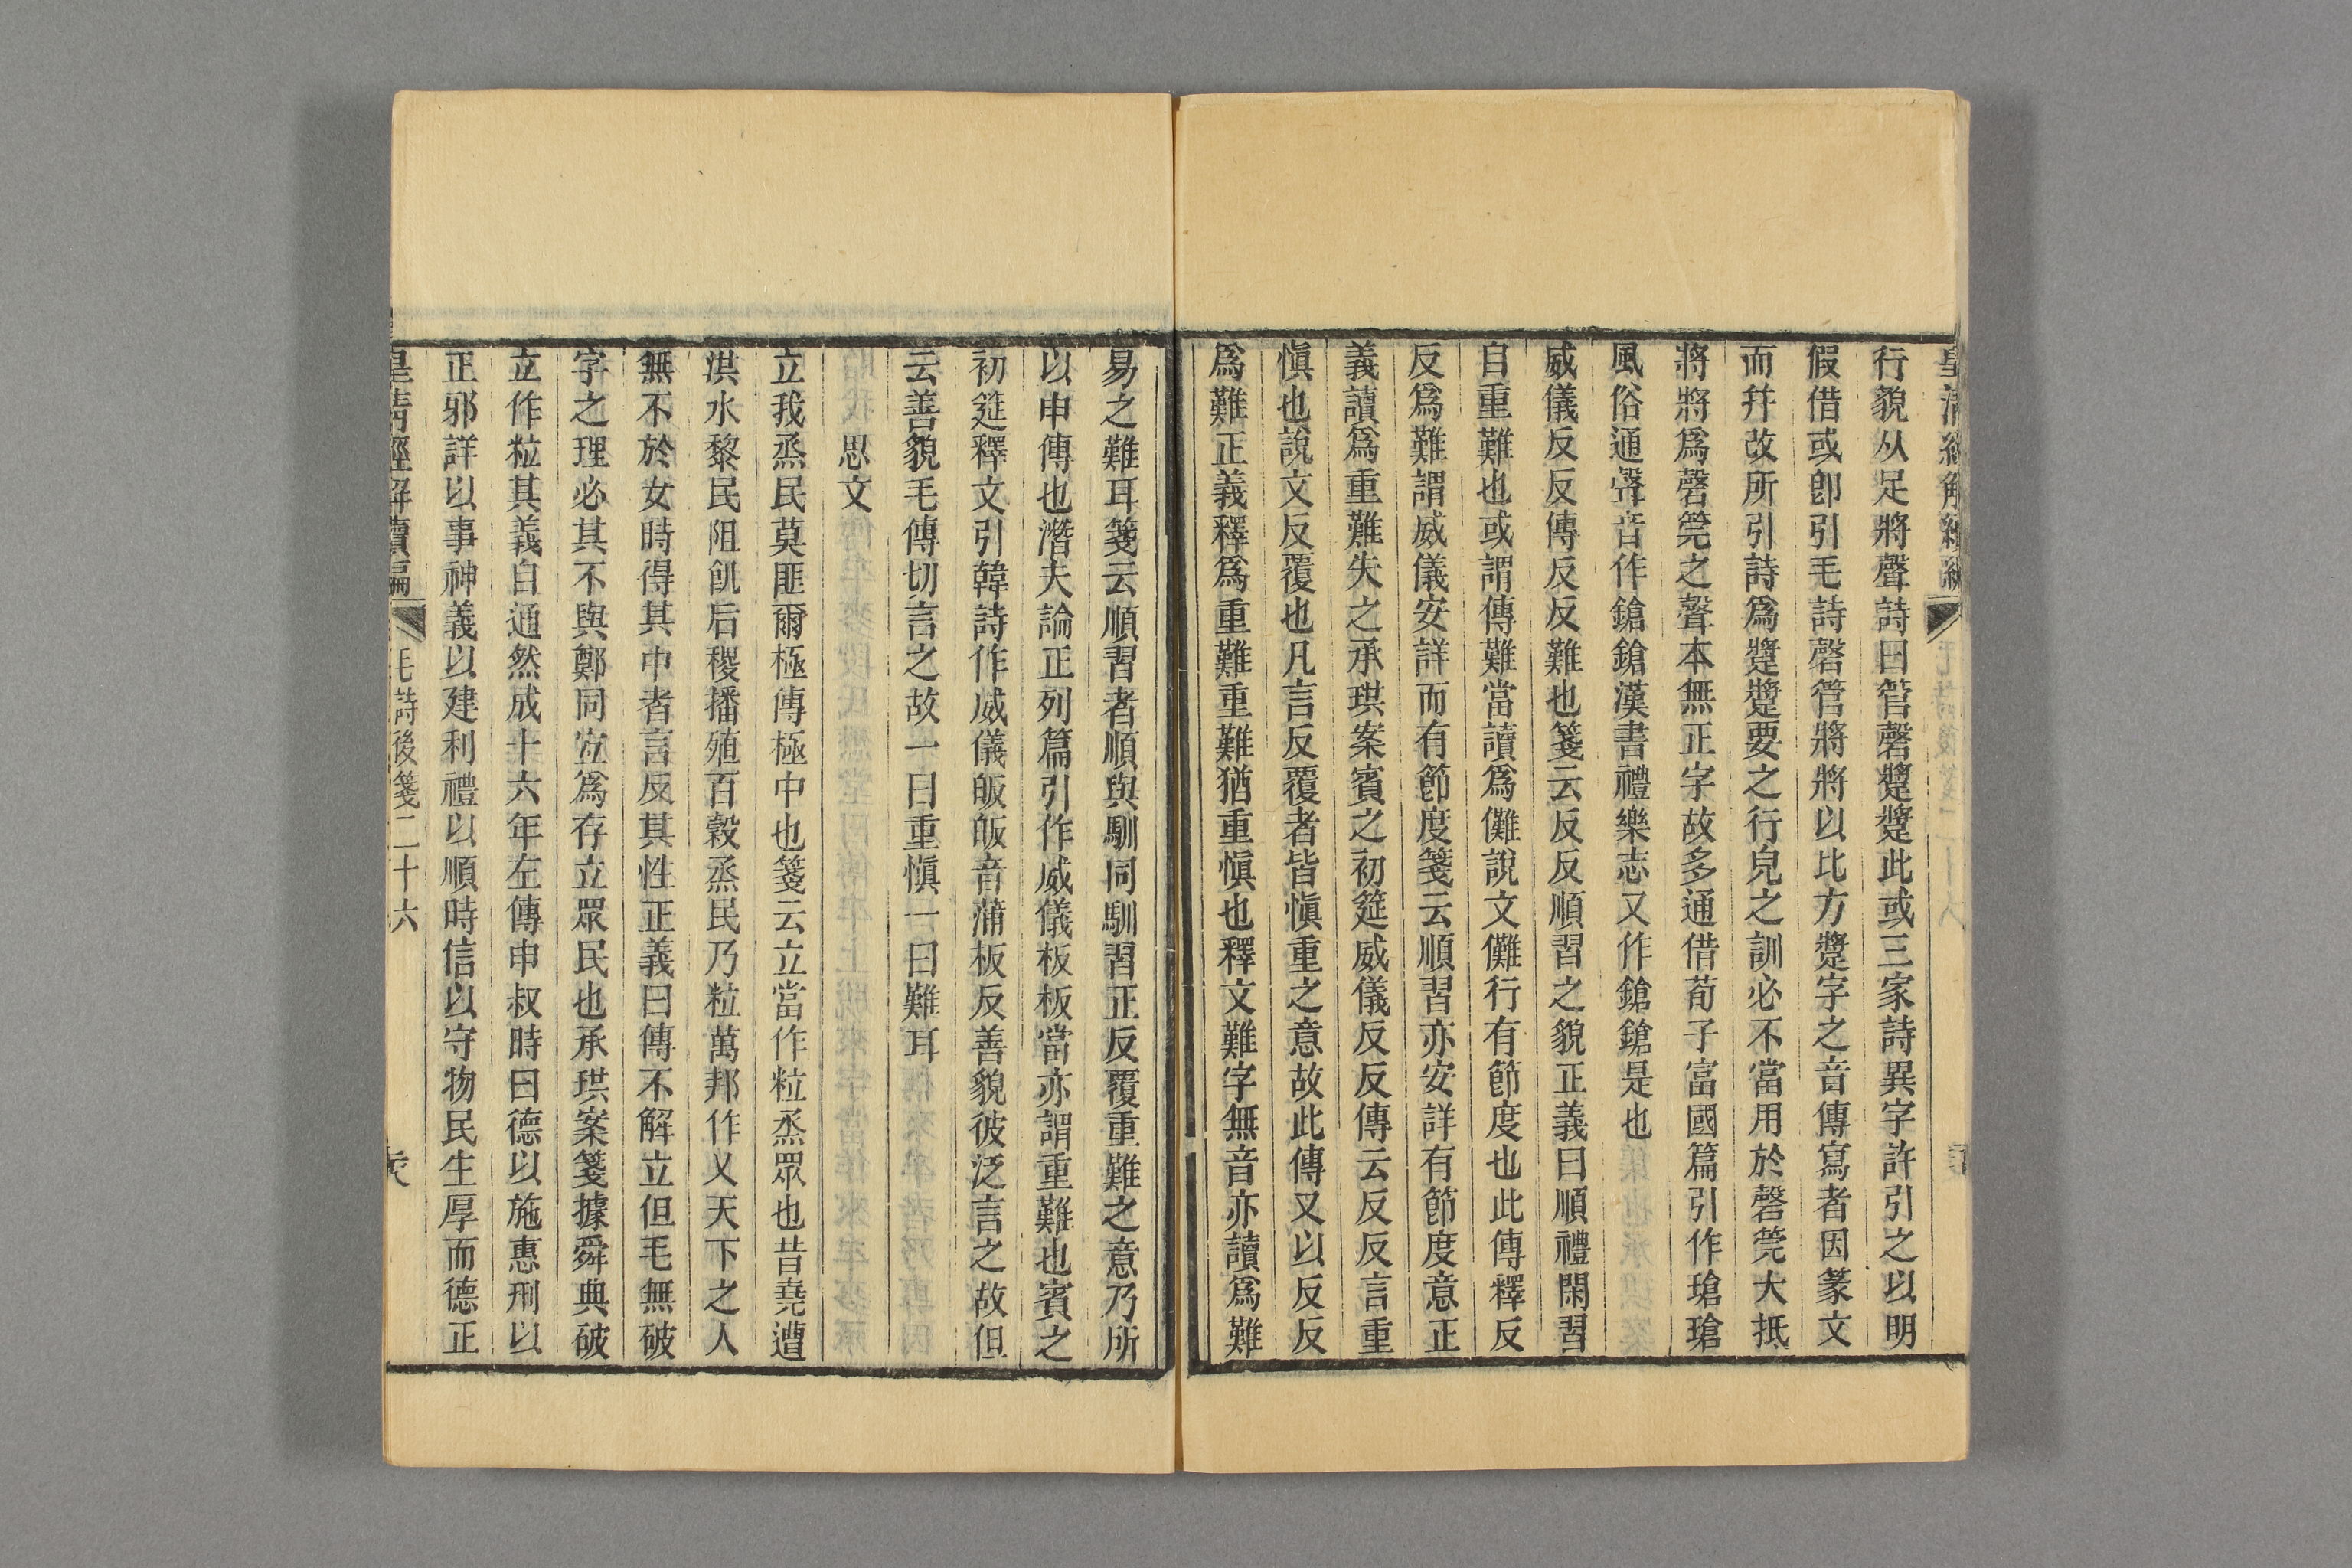 皇清經解續編
行貌从足將聲詩曰管磬蹩蹩此或三家詩異字許引之以明
假借或卽引毛詩磬管將將以比方蹩字之音傳寫者因篆文
而幷改所引詩爲蹩蹩要之行皃之訓必不當用於磬筦大抵
將將爲磬筦之聲本無正字故多通借荀子富國篇引作瑲瑲
風俗通聲音作鎗鎗漢書禮樂志又作鎗鎗是也
威儀反反傳反反難也箋云反反順習之貌正義曰順禮閑習
自重難也或謂傳難當讀爲儺說文儺行有節度也此傳釋反
反爲難謂威儀安詳而有節度箋云順習亦安詳有節度意正
義讀爲重難失之承珙案賓之初筵威儀反反傳云反反言重
愼也說文反覆也凡言反覆者皆愼重之意故此傳又以反反
爲難正義釋爲重難重難猶重愼也釋文難字無音亦讀爲難
易之難耳箋云順習者順與馴同馴習正反覆重難之意乃所
以申傳也潛夫論正列篇引作威儀板板當亦謂重難也賓之
初筵釋文引韓詩作威儀昄昄音蒲板反善貌彼泛言之故但
云善貌毛傳切言之故一曰重愼一曰難耳
思文
立我烝民莫匪爾極傳極中也箋云立當作粒烝眾也昔堯遭
洪水黎民阻飢后稷播殖百穀烝民乃粒萬邦作乂天下之人
無不於女時得其中者言反其性正義曰傳不解立但毛無破
字之理必其不與鄭同宜爲存立眾民也承珙案箋據舜典破
立作粒其義自通然成十六年左傳申叔時曰德以施惠刑以
正邪詳以事神義以建利禮以順時信以守物民生厚而德正
皇清經解續編 毛詩後箋二十六